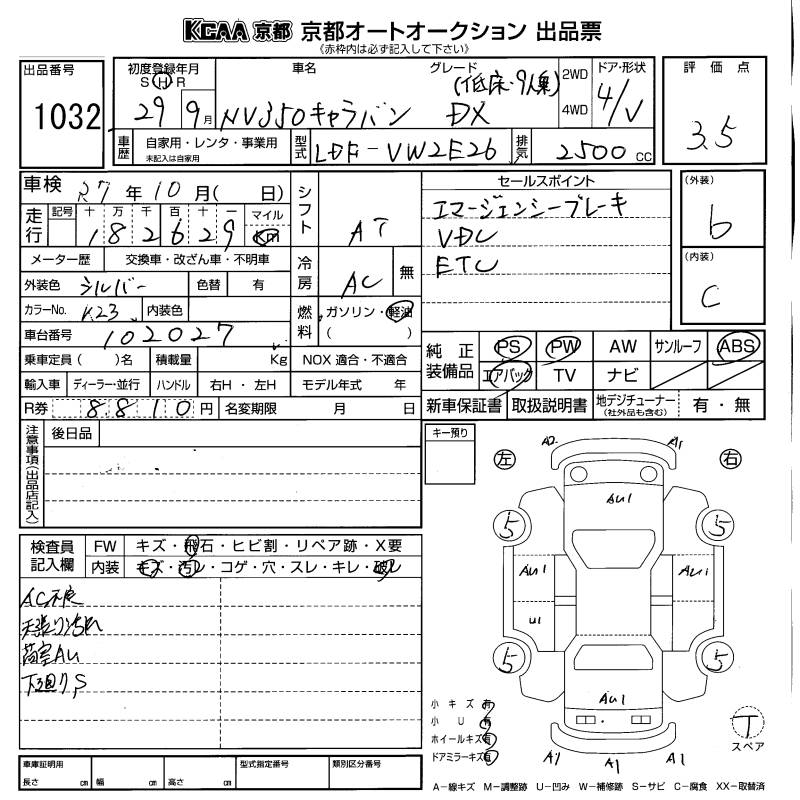 KCAA 京都 京都オートオークション 出品票
《赤枠内は必ず記入して下さい》
出品番号
1032
初度登録年月
S H R
29 9月
車名
NV350キャラバン
グレード
(低床・9人乗)
DX
2WD
4WD
ドア・形状
4/V
評価点
3.5
車歴
自家用・レンタ・事業用
未記入は自家用
型式
LDF-VW2E26
排気
2500 cc
車検
R7年10月( 日)
走行
記号 十 万 千 百 十 一 マイル
182629 Km
メーター歴 交換車・改ざん車・不明車
外装色 シルバー 色替 有
カラーNo. K23 内装色
車台番号 102027
乗車定員( )名 積載量 Kg
輸入車 ディーラー・並行 ハンドル 右H・左H
R券 8810円 名変期限 月 日
シフト AT
冷房 AC 無
燃料 ガソリン・軽油
( )
NOX 適合・不適合
モデル年式 年
セールスポイント
エマージェンシーブレーキ
VDC
ETC
(外装)
b
(内装)
C
純正装備品
PS PW AW サンルーフ ABS
エアバック TV ナビ
新車保証書 取扱説明書 地デジチューナー (社外品も含む) 有・無
注意事項(出品店記入)
後日品
キー預り
検査員記入欄
FW キズ・飛石・ヒビ割・リペア跡・X要
内装 キズ・汚レ・コゲ・穴・スレ・キレ・破レ
AC不良
天張り汚れ
荷室AU
下廻りS
左 右
A2 A1
AU1
5 5
AU1 AU1
U1
5 5
AU1
A1 A1 A1
小キズ 有
小U 有
ホイールキズ 有
ドアミラーキズ 有
T
スペア
車庫証明用
長さ cm 幅 cm 高さ cm
型式指定番号
類別区分番号
A−線キズ M−調整跡 U−凹み W−補修跡 S−サビ C−腐食 XX−取替済